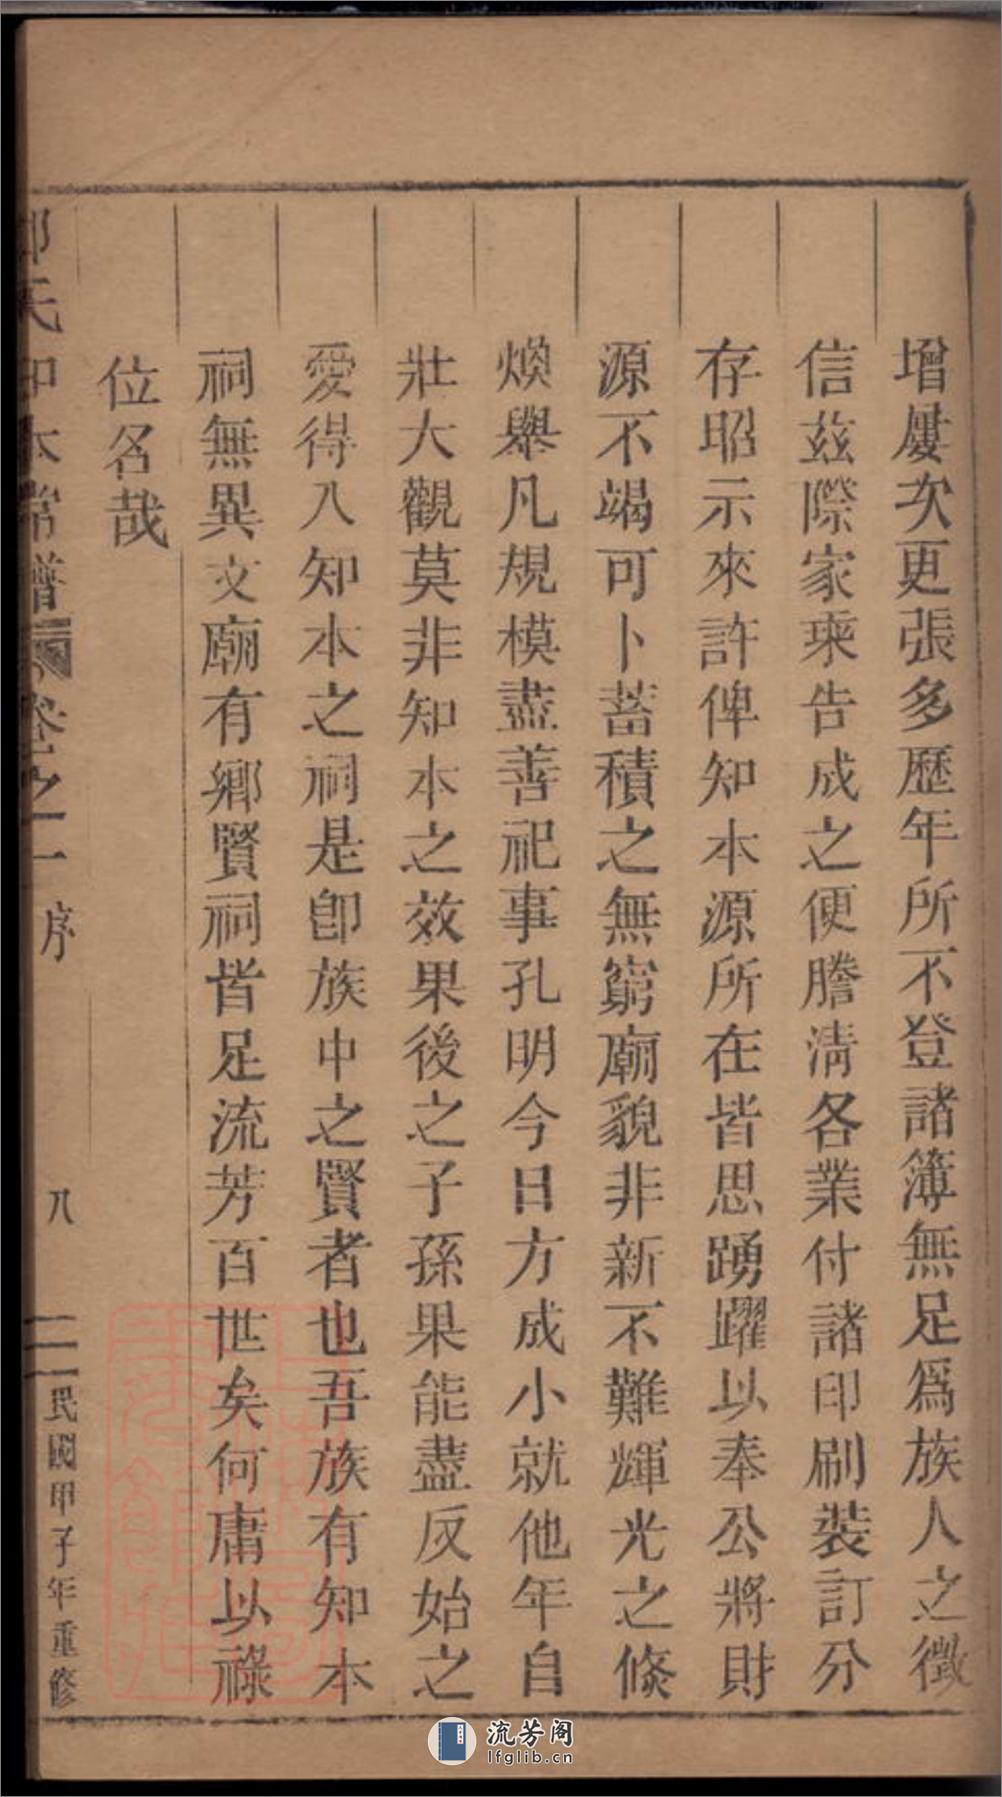 增屢次更張多歷年所不登諸簿無足爲族人之徵
信茲際家乘告成之便謄淸各業付諸印刷裝訂分
存昭示來許俾知本源所在皆思踴躍以奉公將財
源不竭可卜蓄積之無窮廟貌非新不難輝光之倐
煥舉凡規模盡善祀事孔明今日方成小就他年自
壯大觀莫非知本之效果後之子孫果能盡反始之
愛得入知本之祠是卽族中之賢者也吾族有知本
祠無異文廟有鄉賢祠皆足流芳百世矣何庸以祿
位名哉
氏知本常譜 卷之一 序 八 民國甲子年重修
流芳阁
lfglib.cn